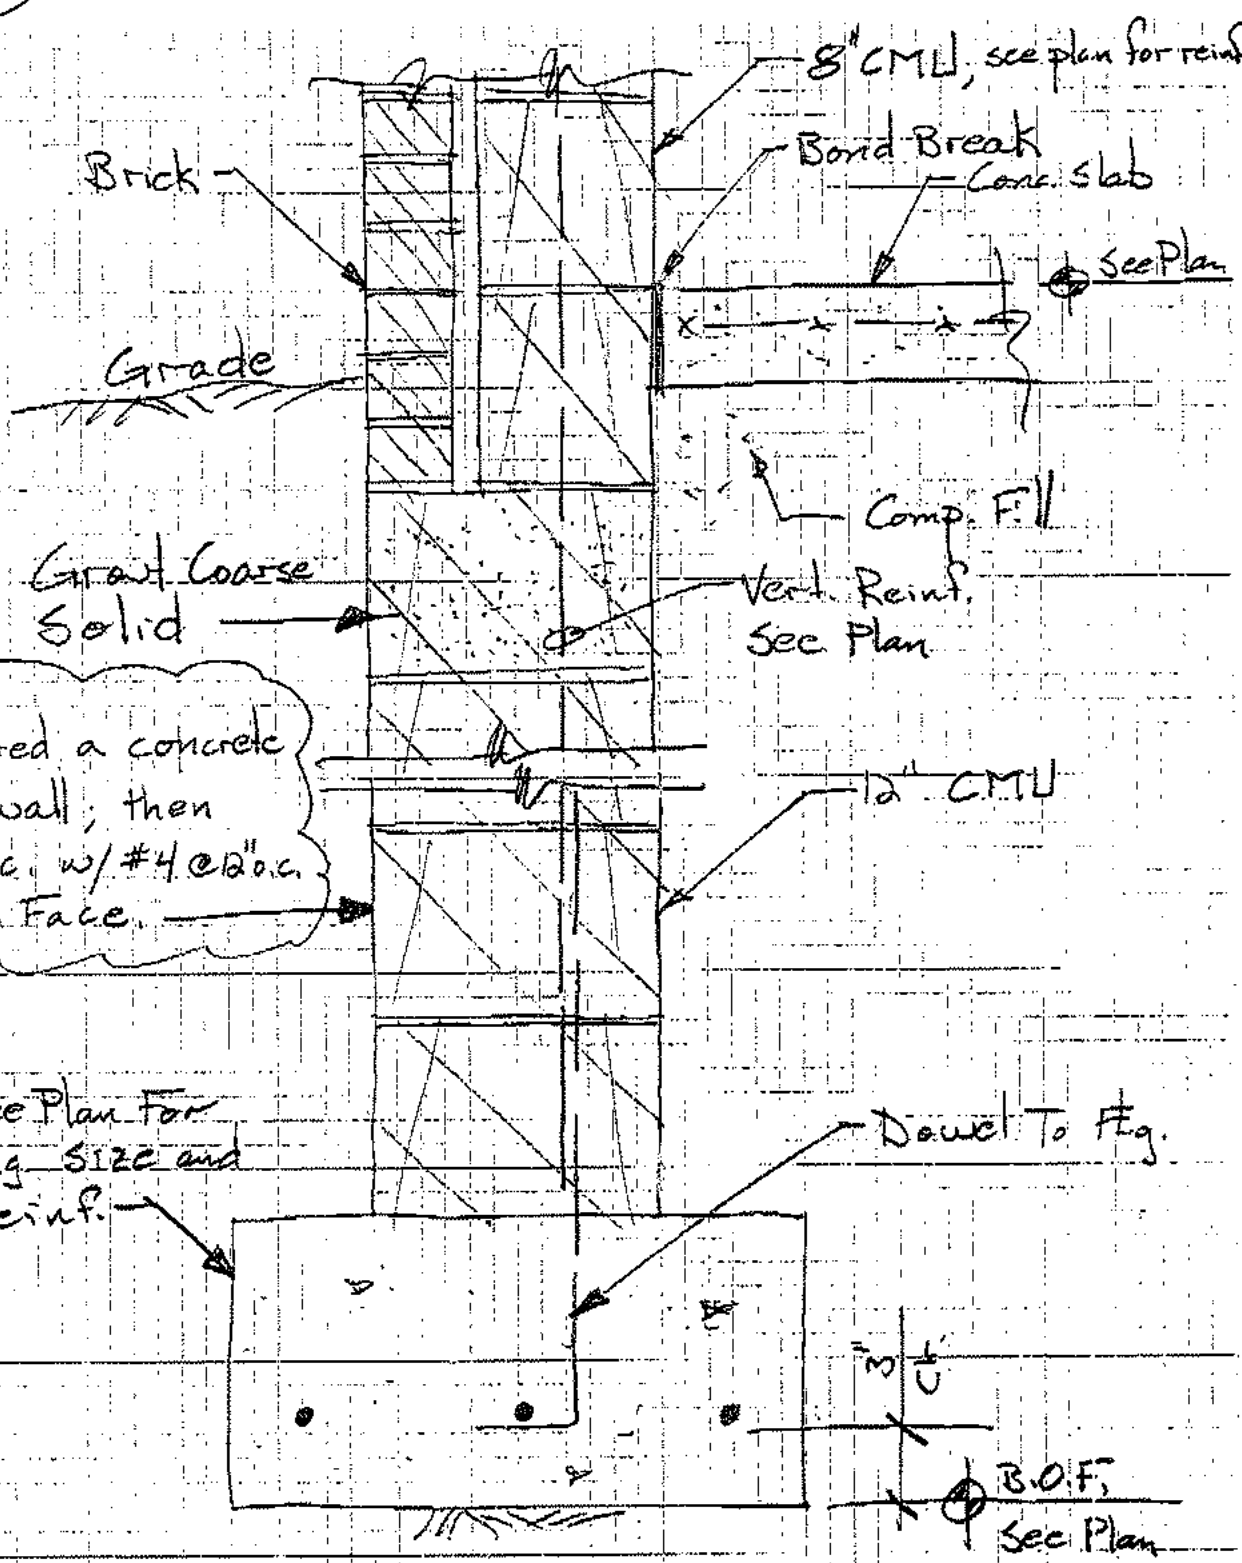 8" CMU, see plan for reinf
Bond Break
Conc. Slab
Brick
See Plan
Grade
Comp. Fill
Grout Coarse
Solid
Vert. Reinf.
See Plan
a concrete
wall; then
w/ #4 @ 12" o.c.
Face.
12" CMU
Plan For
Size and
Dowel To Ftg.
3"
CLR
B.O.F.
See Plan